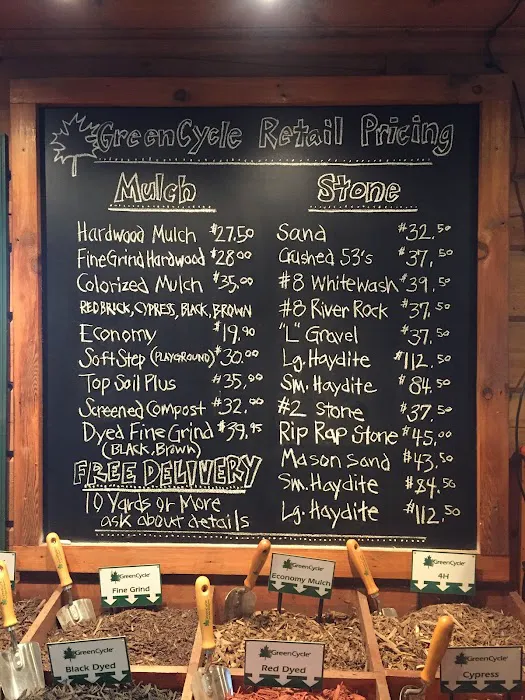 GreenCycle Retail Pricing
Mulch
Hardwood Mulch $27.50
Fine Grind Hardwood $28.00
Colorized Mulch $35.00
RED BRICK, CYPRESS, BLACK, BROWN
Economy $19.90
Soft Step (PLAYGROUND) $30.00
Top Soil Plus $35.00
Screened Compost $32.00
Dyed Fine Grind $39.95
(BLACK, BROWN)
FREE DELIVERY
10 Yards or More
ask about details
Stone
Sand $32.50
Crushed 53's $37.50
#8 Whitewash $39.50
#8 River Rock $37.50
"L" Gravel $37.50
Lg. Haydite $112.50
Sm. Haydite $84.50
#2 Stone $37.50
Rip Rap Stone $45.00
Mason Sand $43.50
Sm. Haydite $84.50
Lg. Haydite $112.50
GreenCycle
Fine Grind
GreenCycle
Economy Mulch
GreenCycle
4H
GreenCycle
Black Dyed
GreenCycle
Red Dyed
GreenCycle
Cypress